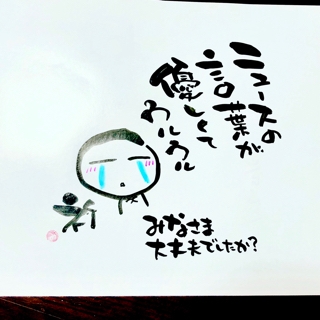 ニュースの
言葉が
優しくて
ウルウル
みなさま
大丈夫でしたか?